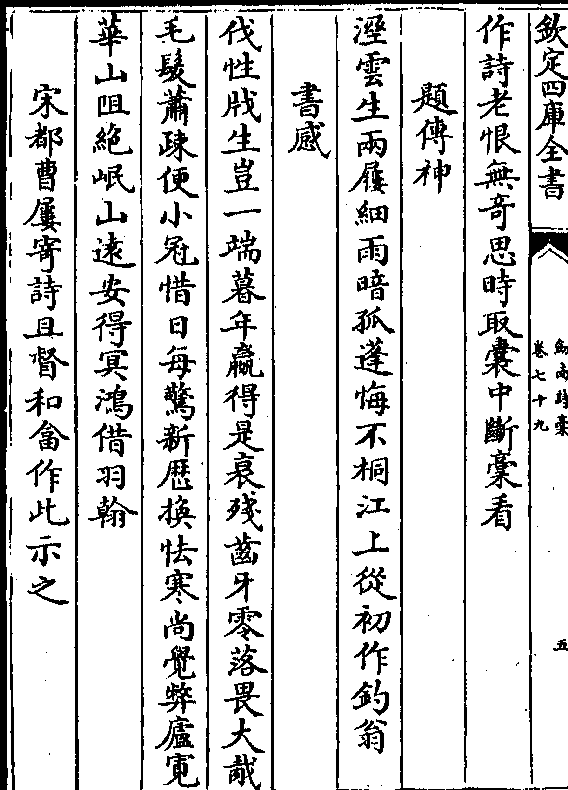 欽定四庫全書
劍南詩稾
卷七十九
五
作詩老恨無奇思時取囊中斷稾看
題傳神
溼雲生兩屨細雨暗孤蓬悔不桐江上從初作釣翁
書感
伐性戕生豈一端暮年贏得是衰殘齒牙零落畏大胾
毛髮蕭疎便小冠惜日每驚新厯換怯寒尚覺弊廬寛
華山阻絶岷山遠安得冥鴻借羽翰
宋都曹屢寄詩且督和畣作此示之